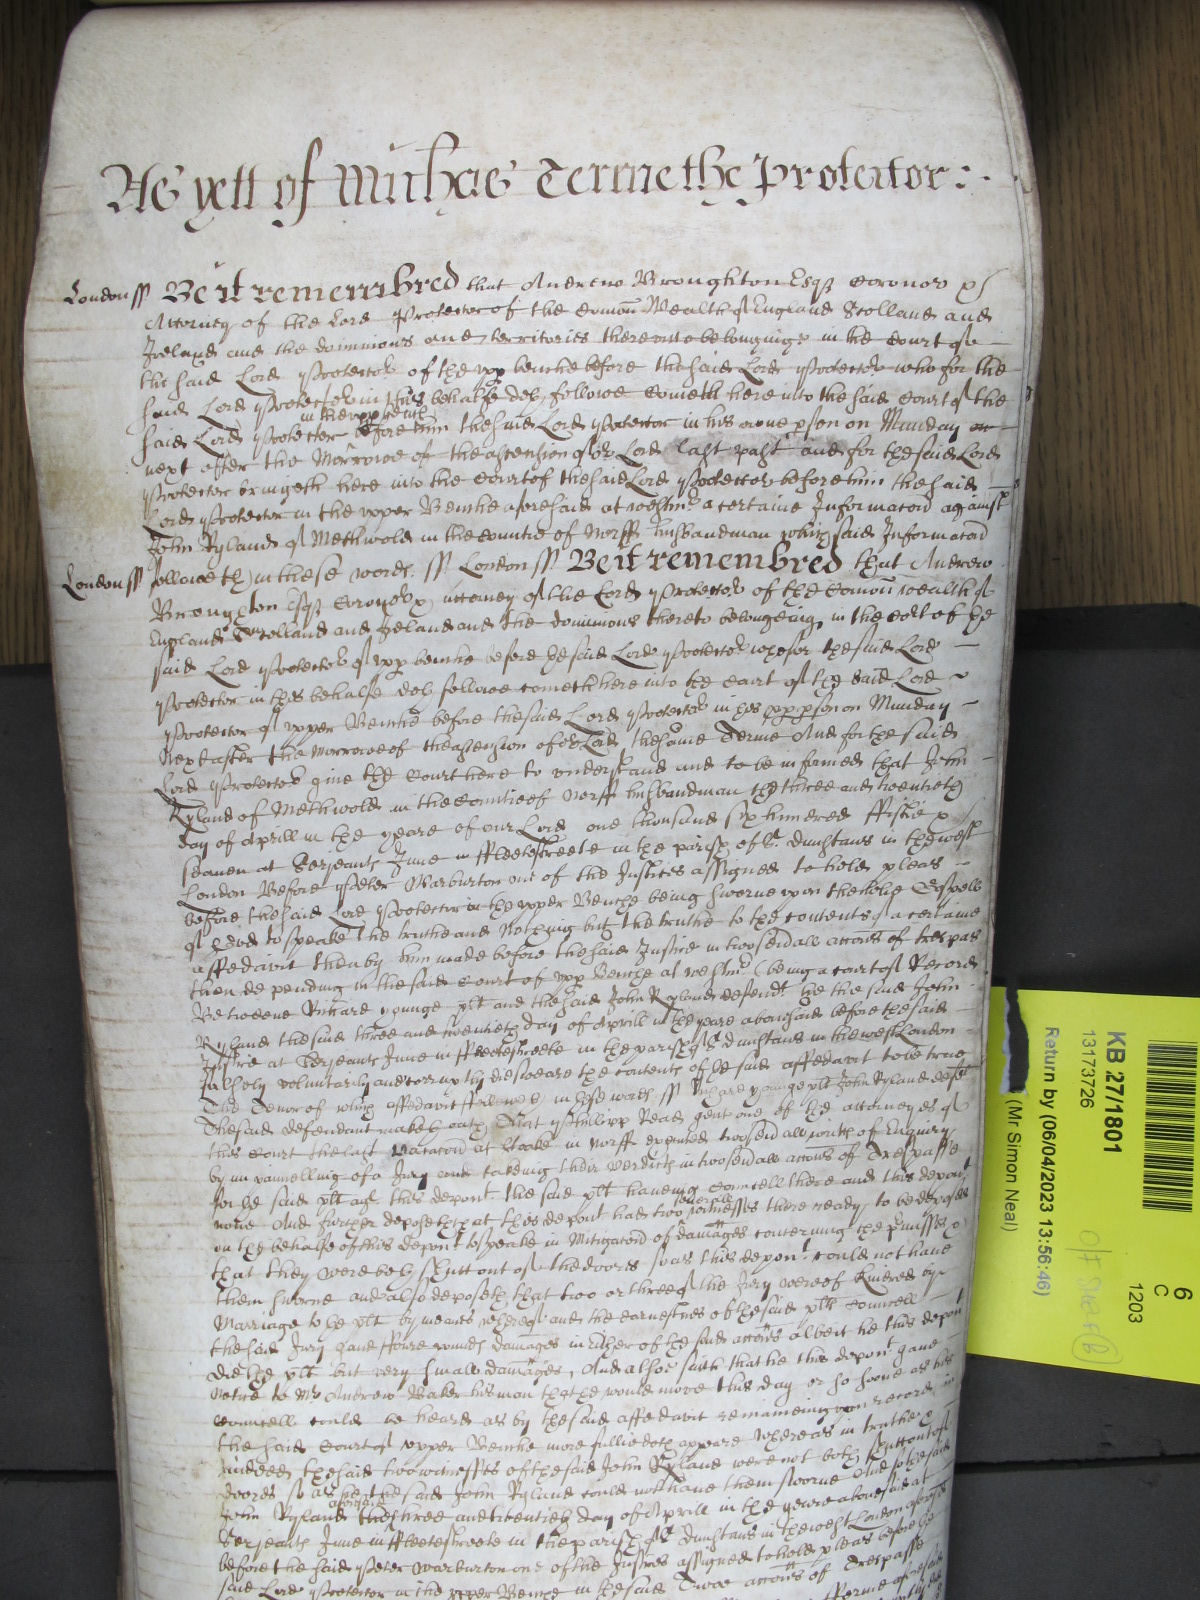 As yett of Michaes Terme the Protector:
London ss Be it remembred that Andrew Broughton Esqr Coronor &
Attorney of the Lord Protector of the Comon Wealth of England Scotland and
Ireland and the dominions and territories thereunto belonginge in the Court of
the said Lord Protector of the upp benche before the said Lord Protector who for the
said Lord Protector in this behalfe doth followe Cometh here into the said Court of the
in the upp bench
said Lord Protector before him the said Lord Protector in his owne pson on Munday
next after the Morrowe of the ascension of or Lord last past and for the said Lord
Protector bringeth here into the Court of the said Lord Protector before him the said
Lord Protector in the upper Benche aforesaid at Westmr a certaine Informacon against
John Ryland of Methwold in the Countie of Norff husbandman which said Informacon
London ss followeth in these words ss London ss Be it remembred that Andrew
Broughton Esqr Coronor & attorney of the Lord Protector of the Comon wealth of
England Scotland and Ireland and the dominions thereto belongeing in the Cort of the
said Lord Protector of upp benche before the said Lord Protector who for the said Lord
Protector in this behalfe doth followe cometh here into the Court of the said Lord
Protector of upper Benche before the said Lord Protector in his pson on Munday
Next after the Morrowe of the ascension of or Lord the same Terme And for the said
Lord Protector give the Court here to understand and to be informed that John
Ryland of Methwold in the Countie of Norff husbandman the three and twentieth
day of Aprill in the yeare of our Lord one thousand six hundred fiftie &
seaven at Serjeants Inne in ffleetestreete in the parish of St Dunstans in the west
London Before Peter Warburton one of the Justices assigned to hold pleas
before the said Lord Protector in the upper Benche being sworne upon the holie Gospells
of God to speake the truth and Nothing but the truthe to the contents of a certaine
affedavit then by him made before the said Justice in two severall accons of trespas
then depending in the said Court of upp Benche at Westmr (being a court of Record)
Betweene Richard Younge plt and the said John Ryland defendt he the said John
Ryland the said three and twentieth day of Aprill in the yeare abovesaid before the said
Justice at Serjeants Inne in ffleetestreete in the parish of St Dunstans in the west London
falsely voluntarily and corruptly did sweare the contents of the said affedavit to be true
The Tenor of which affedavit followeth in these words ss Richard Younge plt John Ryland defdt
The said defendant maketh oath That Phillipp Read gent one of the attorneyes of
this Court the last vacacon at in Norff executed two severall writts of Enquiry
by impannelling of a Jury and takeing their verdicts in two severall accons of Trespasse
for the said plt agt this depont the said plt haveing Councell there and this depont
severall
none And further deposeth that this depont had two witnesses there ready to be deposed
on the behalfe of this depont to speake in Mitigacon of damages concerning the pmisses &
that they were both shutt out of the doores soe as this depont could not have
them sworne and also deposeth that two or three of the Jury were of kindred by
Marriage to the plt by meanes whereof and the earnestnes of the said plts Councell
the said Jury gave ffoure pounds damages in Either of the said accons albeit he this depont
did the plt but very small damages, And alsoe saith that he this depont gave
notice to Mr Andrew Baker his man that he would move this day or so soone as his
Councell could be heard as by the said affedavit remaineing upon record in
the said Court of upper Benche more fullie doth appeare whereas in truthe &
indeed the said two witnesses of the said John Ryland were not both shutt out of
doores so as he the said John Ryland could not have them sworne And so the said
aforesaid
John Ryland the three and twentieth day of Aprill in the yeare abovesaid at
Serjeants Inne in ffleetestreete in the parish of St Dunstans in the west London aforesd
before the said Peter Warburton one of the Justices assigned to hold pleas before the
said Lord Protector in the upper Benche in the said Two accons of Trespasse
KB 27/1801
13173726
Return by (06/04/2023 13:56:46)
(Mr Simon Neal)
6
C
1203